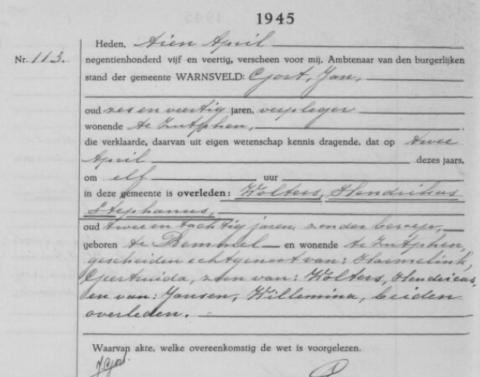 1945
Heden, tien April
Nr. 113. negentienhonderd vijf en veertig, verscheen voor mij, Ambtenaar van den burgerlijken
stand der gemeente WARNSVELD: Gjort, Jan,
oud zes en veertig jaren, verpleger
wonende te Zutphen,
die verklaarde, daarvan uit eigen wetenschap kennis dragende, dat op twee
April dezes jaars,
om elf uur
in deze gemeente is overleden: Wolters, Hendrikus
Stephanus,
oud twee en tachtig jaren, zonder beroep,
geboren te Bemmel en wonende te Zutphen,
gescheiden echtgenoot van: Harmelink,
Gertruida, zoon van: Wolters, Hendricus,
en van: Jansen, Willemina, beiden
overleden.
Waarvan akte, welke overeenkomstig de wet is voorgelezen.